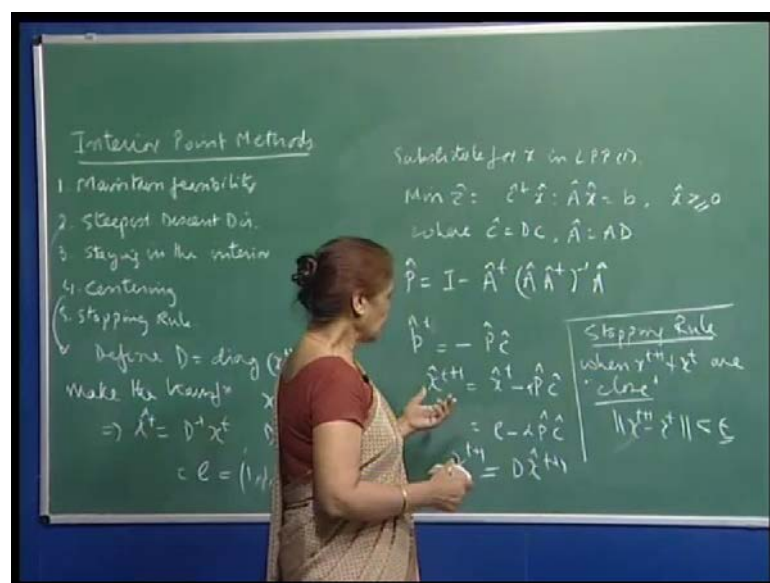 Interior Point Methods
1. Maintain feasibility
2. Steepest Descent Dir.
3. Staying in the interior
4. Centering
5. Stopping Rule
Define D = diag (x
make the transfn x
⇒ x̂ᵗ = D⁻¹xᵗ D
= e = (1,1,
Substitute for x in LPP(1).
Min ẑ = ĉᵗ x̂ : Â x̂ = b, x̂ ≥ 0
where ĉ = DC, Â = AD
P̂ = I - Âᵗ (Â Âᵗ)⁻¹ Â
p̂ᵗ = - P̂ ĉ
x̂ᵗ⁺¹ = x̂ᵗ - αP̂ ĉ
= e - αP̂ ĉ
ᵗ⁺¹ = Dx̂ᵗ⁺¹
Stopping Rule
when xᵗ⁺¹ & xᵗ are
'close'
||xᵗ⁺¹ - xᵗ|| < ε